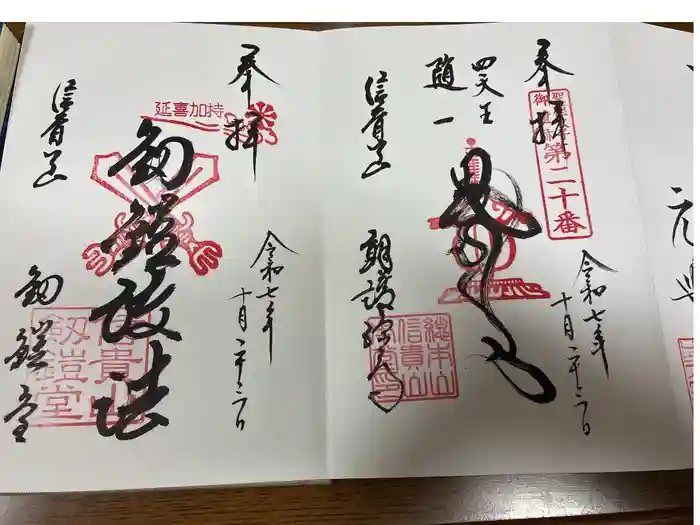 奉拝
聖徳太子
御遺跡第二十番
四天王
随一
信貴山
朝護孫子寺
総本山
信貴山
令和七年
十月二十三日
奉拝
延喜加持
剱鎧護法
信貴山
剱鎧堂
信貴山
剱鎧堂
令和七年
十月二十三日